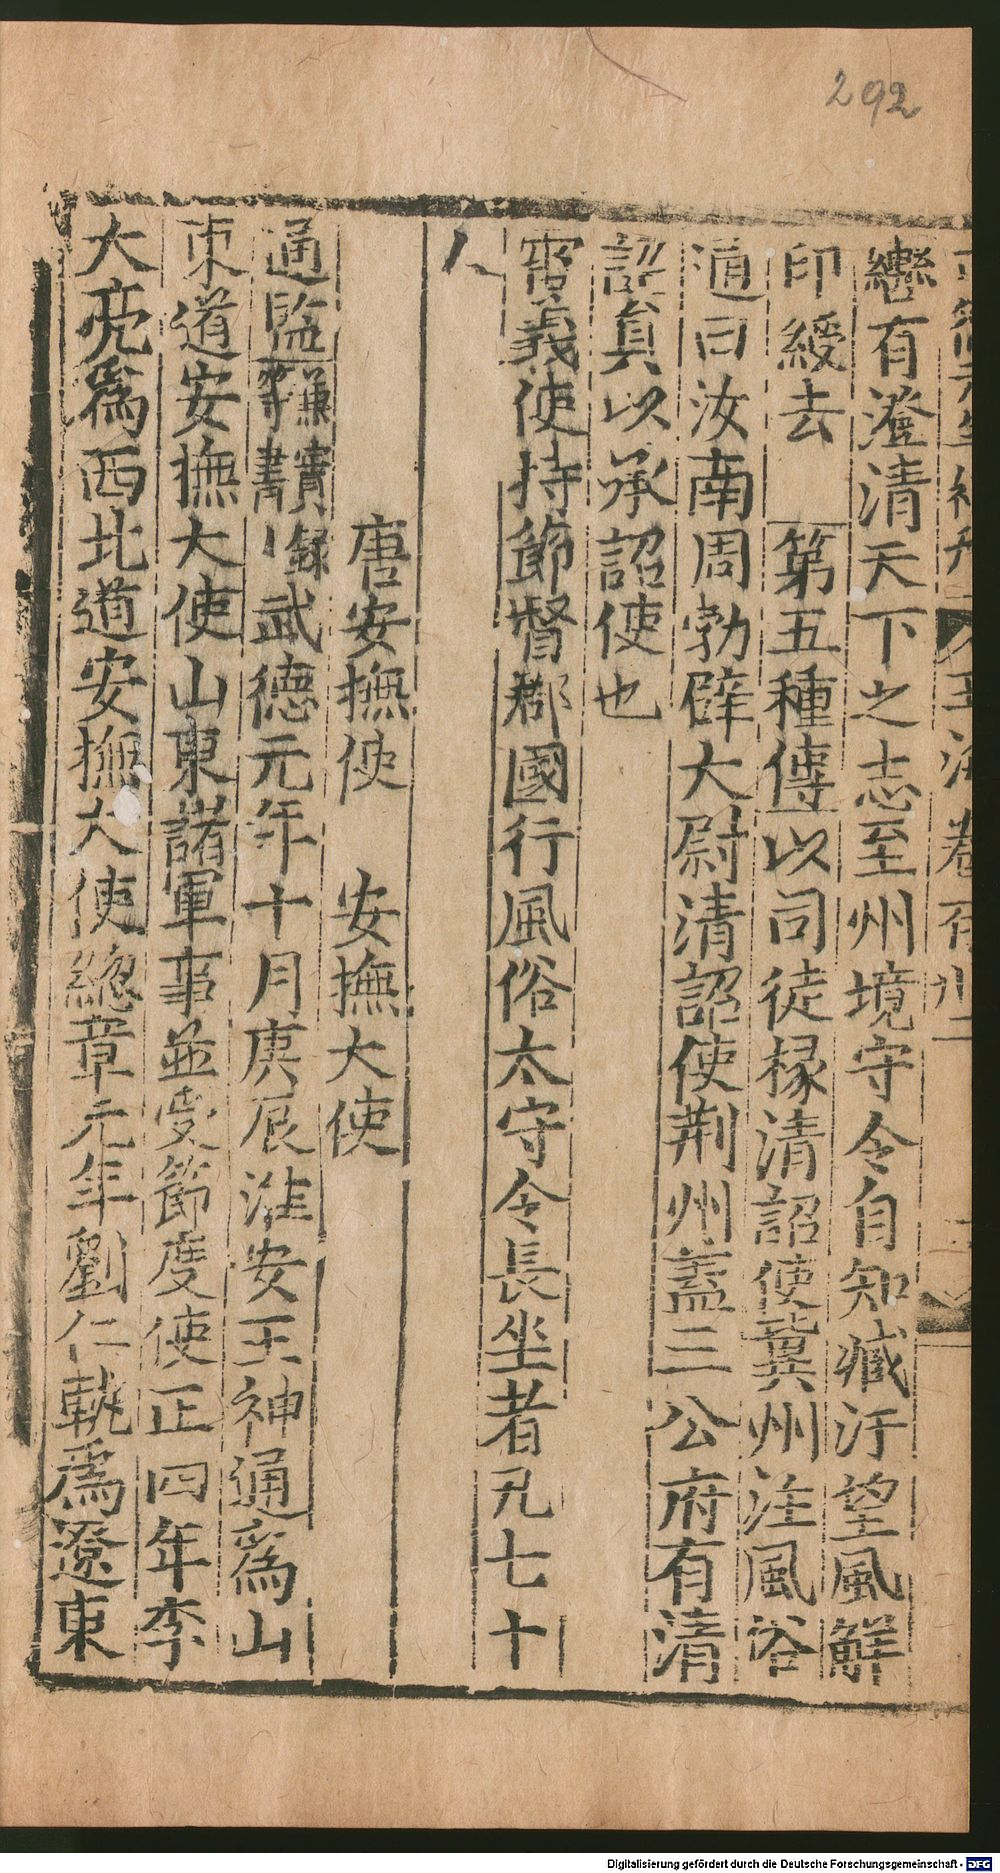 292
玉海卷
轡有澄清天下之志至州境守令自知臧汙望風解
印綬去 第五種傳以司徒掾清詔使冀州注風俗
通曰汝南周勃辟大尉清詔使荆州蓋三公府有清
詔負以承詔使也
甯義使持節督郡國行風俗太守令長坐者凡七十
人
唐安撫使 安撫大使
通監謙寶等書錄武德元年十月庚辰淮安王神通爲山
東道安撫大使山東諸軍事並受節度使正四年李
大亮爲西北道安撫大使緫章元年劉仁軌爲遼東
Digitalisierung gefördert durch die Deutsche Forschungsgemeinschaft - DFG